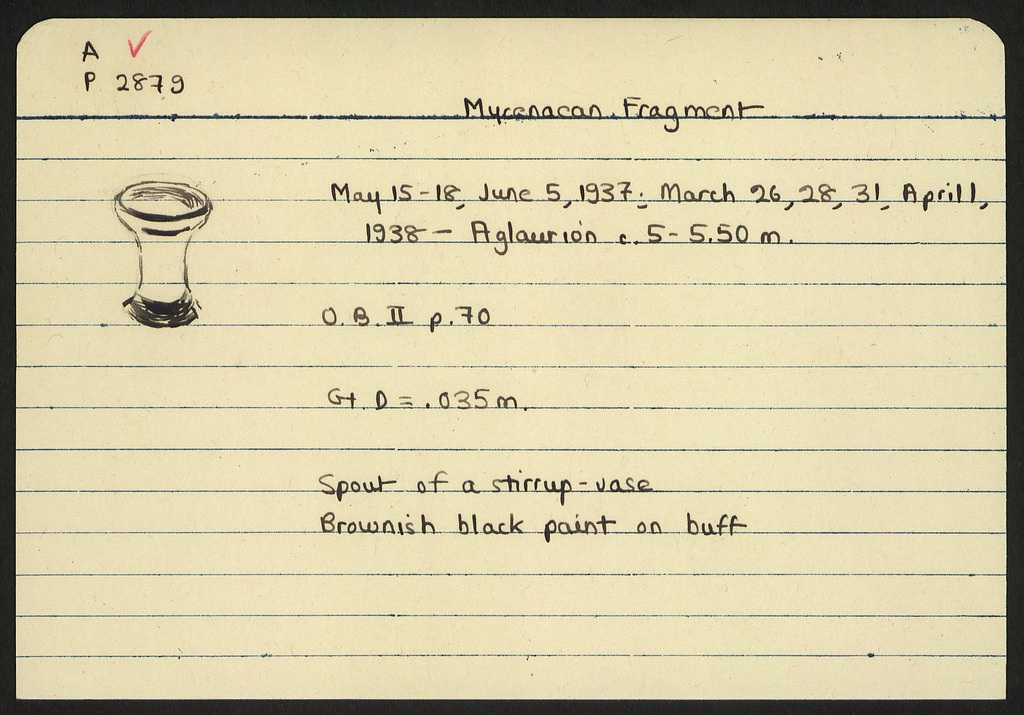 A ✓
P 2879
Mycenaean Fragment
May 15-18, June 5, 1937; March 26, 28, 31, April 1,
1938 - Aglaurion c. 5-5.50 m.
O.B. II p.70
Gt. D = .035 m.
Spout of a stirrup-vase
Brownish black paint on buff